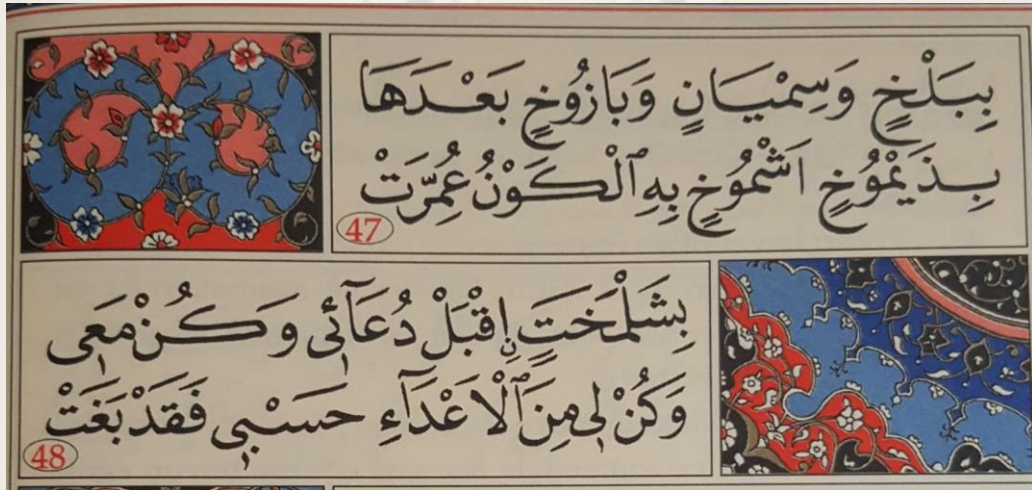 بِبَلْخٍ وَسِمْيَانٍ وَبَازُوخٍ بَعْدَهَا
بِذَيْمُوخٍ اَشْمُوخٍ بِهِ ٱلْكَوْنُ عُمِّرَتْ
47
بِشَلْمَخَتٍ اِقْبَلْ دُعَآئِى وَكُنْ مَعِى
وَكُنْ لِى مِنَ ٱلْاَعْدَآءِ حَسْبِى فَقَدْ بَغَتْ
48